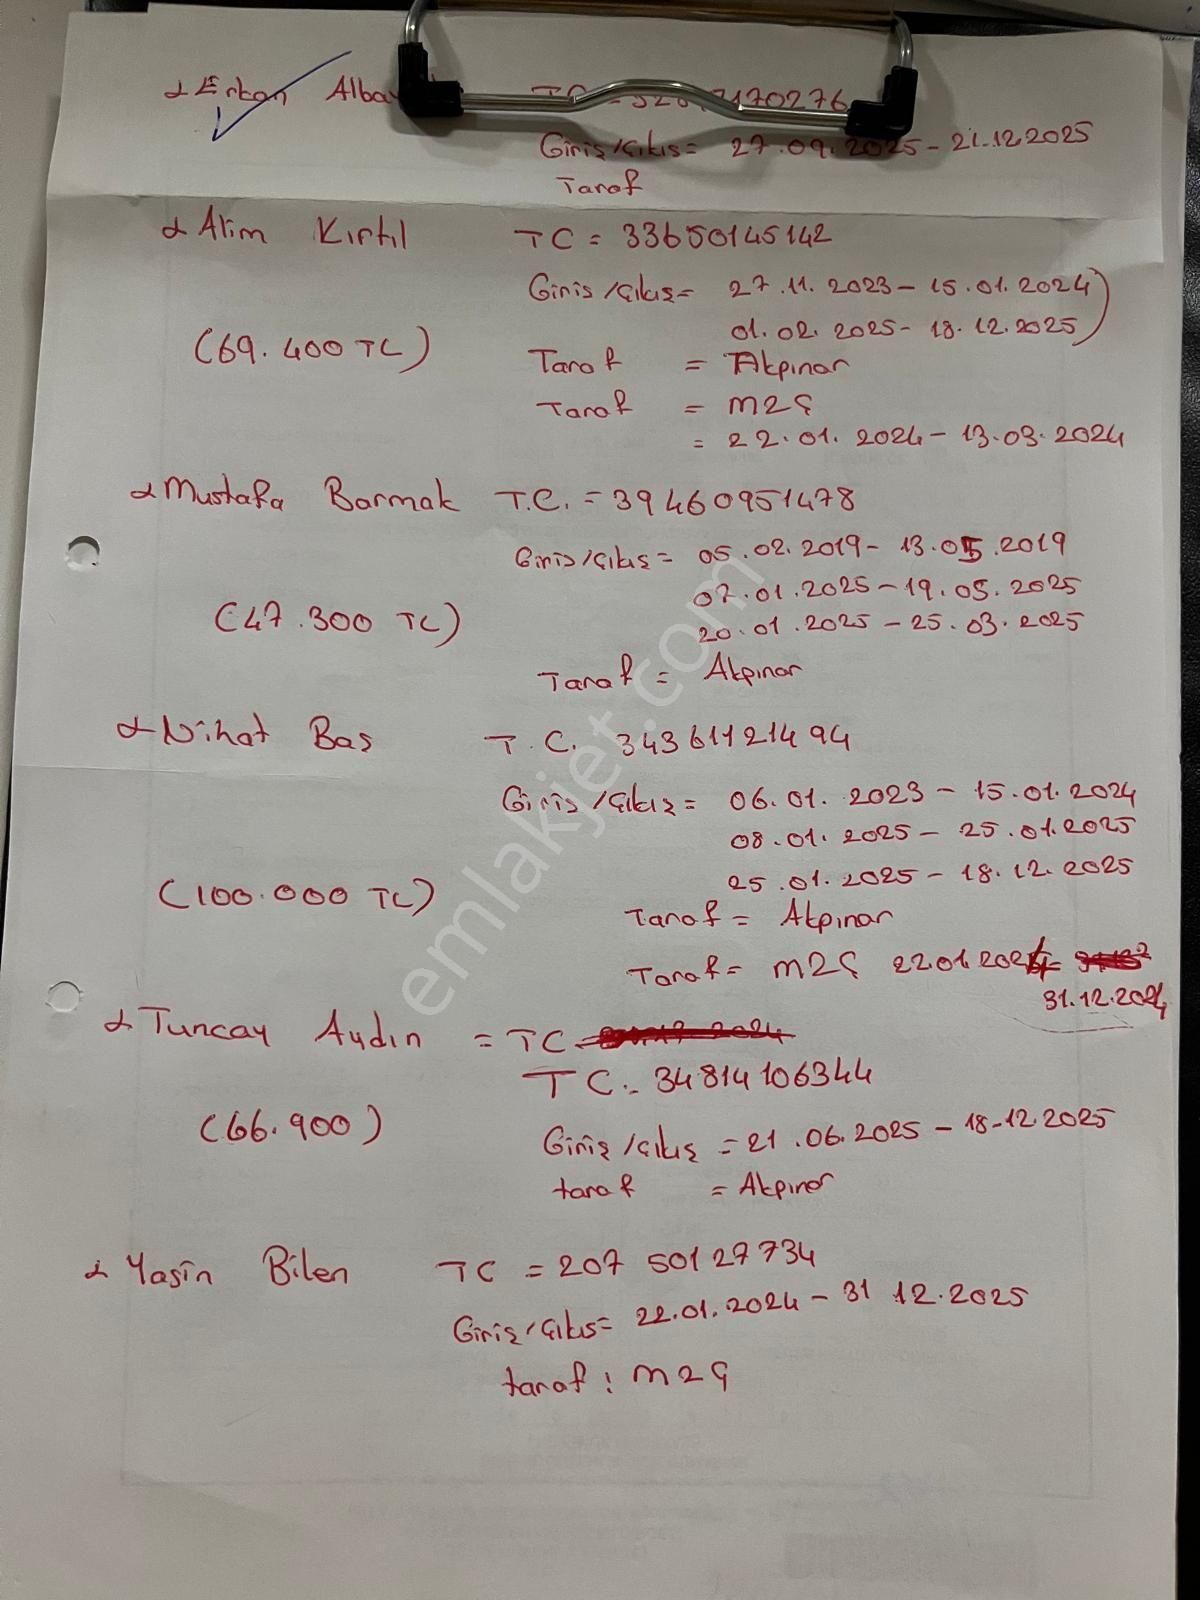 Erkan
Giriş/Çıkış= 27.09.2025- 21.12.2025
Taraf
Alim Kırtıl TC = 33650145142
Giriş/Çıkış= 27.11.2023- 15.01.2024)
01.02.2025- 18.12.2025)
(69.400 TL) Taraf = Akpınar
Taraf = M2Ç
= 22.01.2024- 13.03.2024
Mustafa Barmak T.C. = 39460951478
Giriş/Çıkış= 05.02.2019- 13.05.2019
02.01.2025-19.05.2025
(47.300 TL) 20.01.2025-25.03.2025
Taraf = Akpınar
Nihat Baş T.C. 34361121494
Giriş/Çıkış= 06.01.2023- 15.01.2024
08.01.2025- 25.01.2025
(100.000 TL) 25.01.2025- 18.12.2025
Taraf = Akpınar
Taraf= M2Ç 22.01.2024-
31.12.2024
Tuncay Aydın = TC
TC- 34814106344
(66.900) Giriş/Çıkış =21.06.2025- 18-12.2025
taraf = Akpınar
Yasin Bilen TC = 20750127734
Giriş/Çıkış= 22.01.2024- 31 12.2025
taraf: M2Ç
emlakjet.com